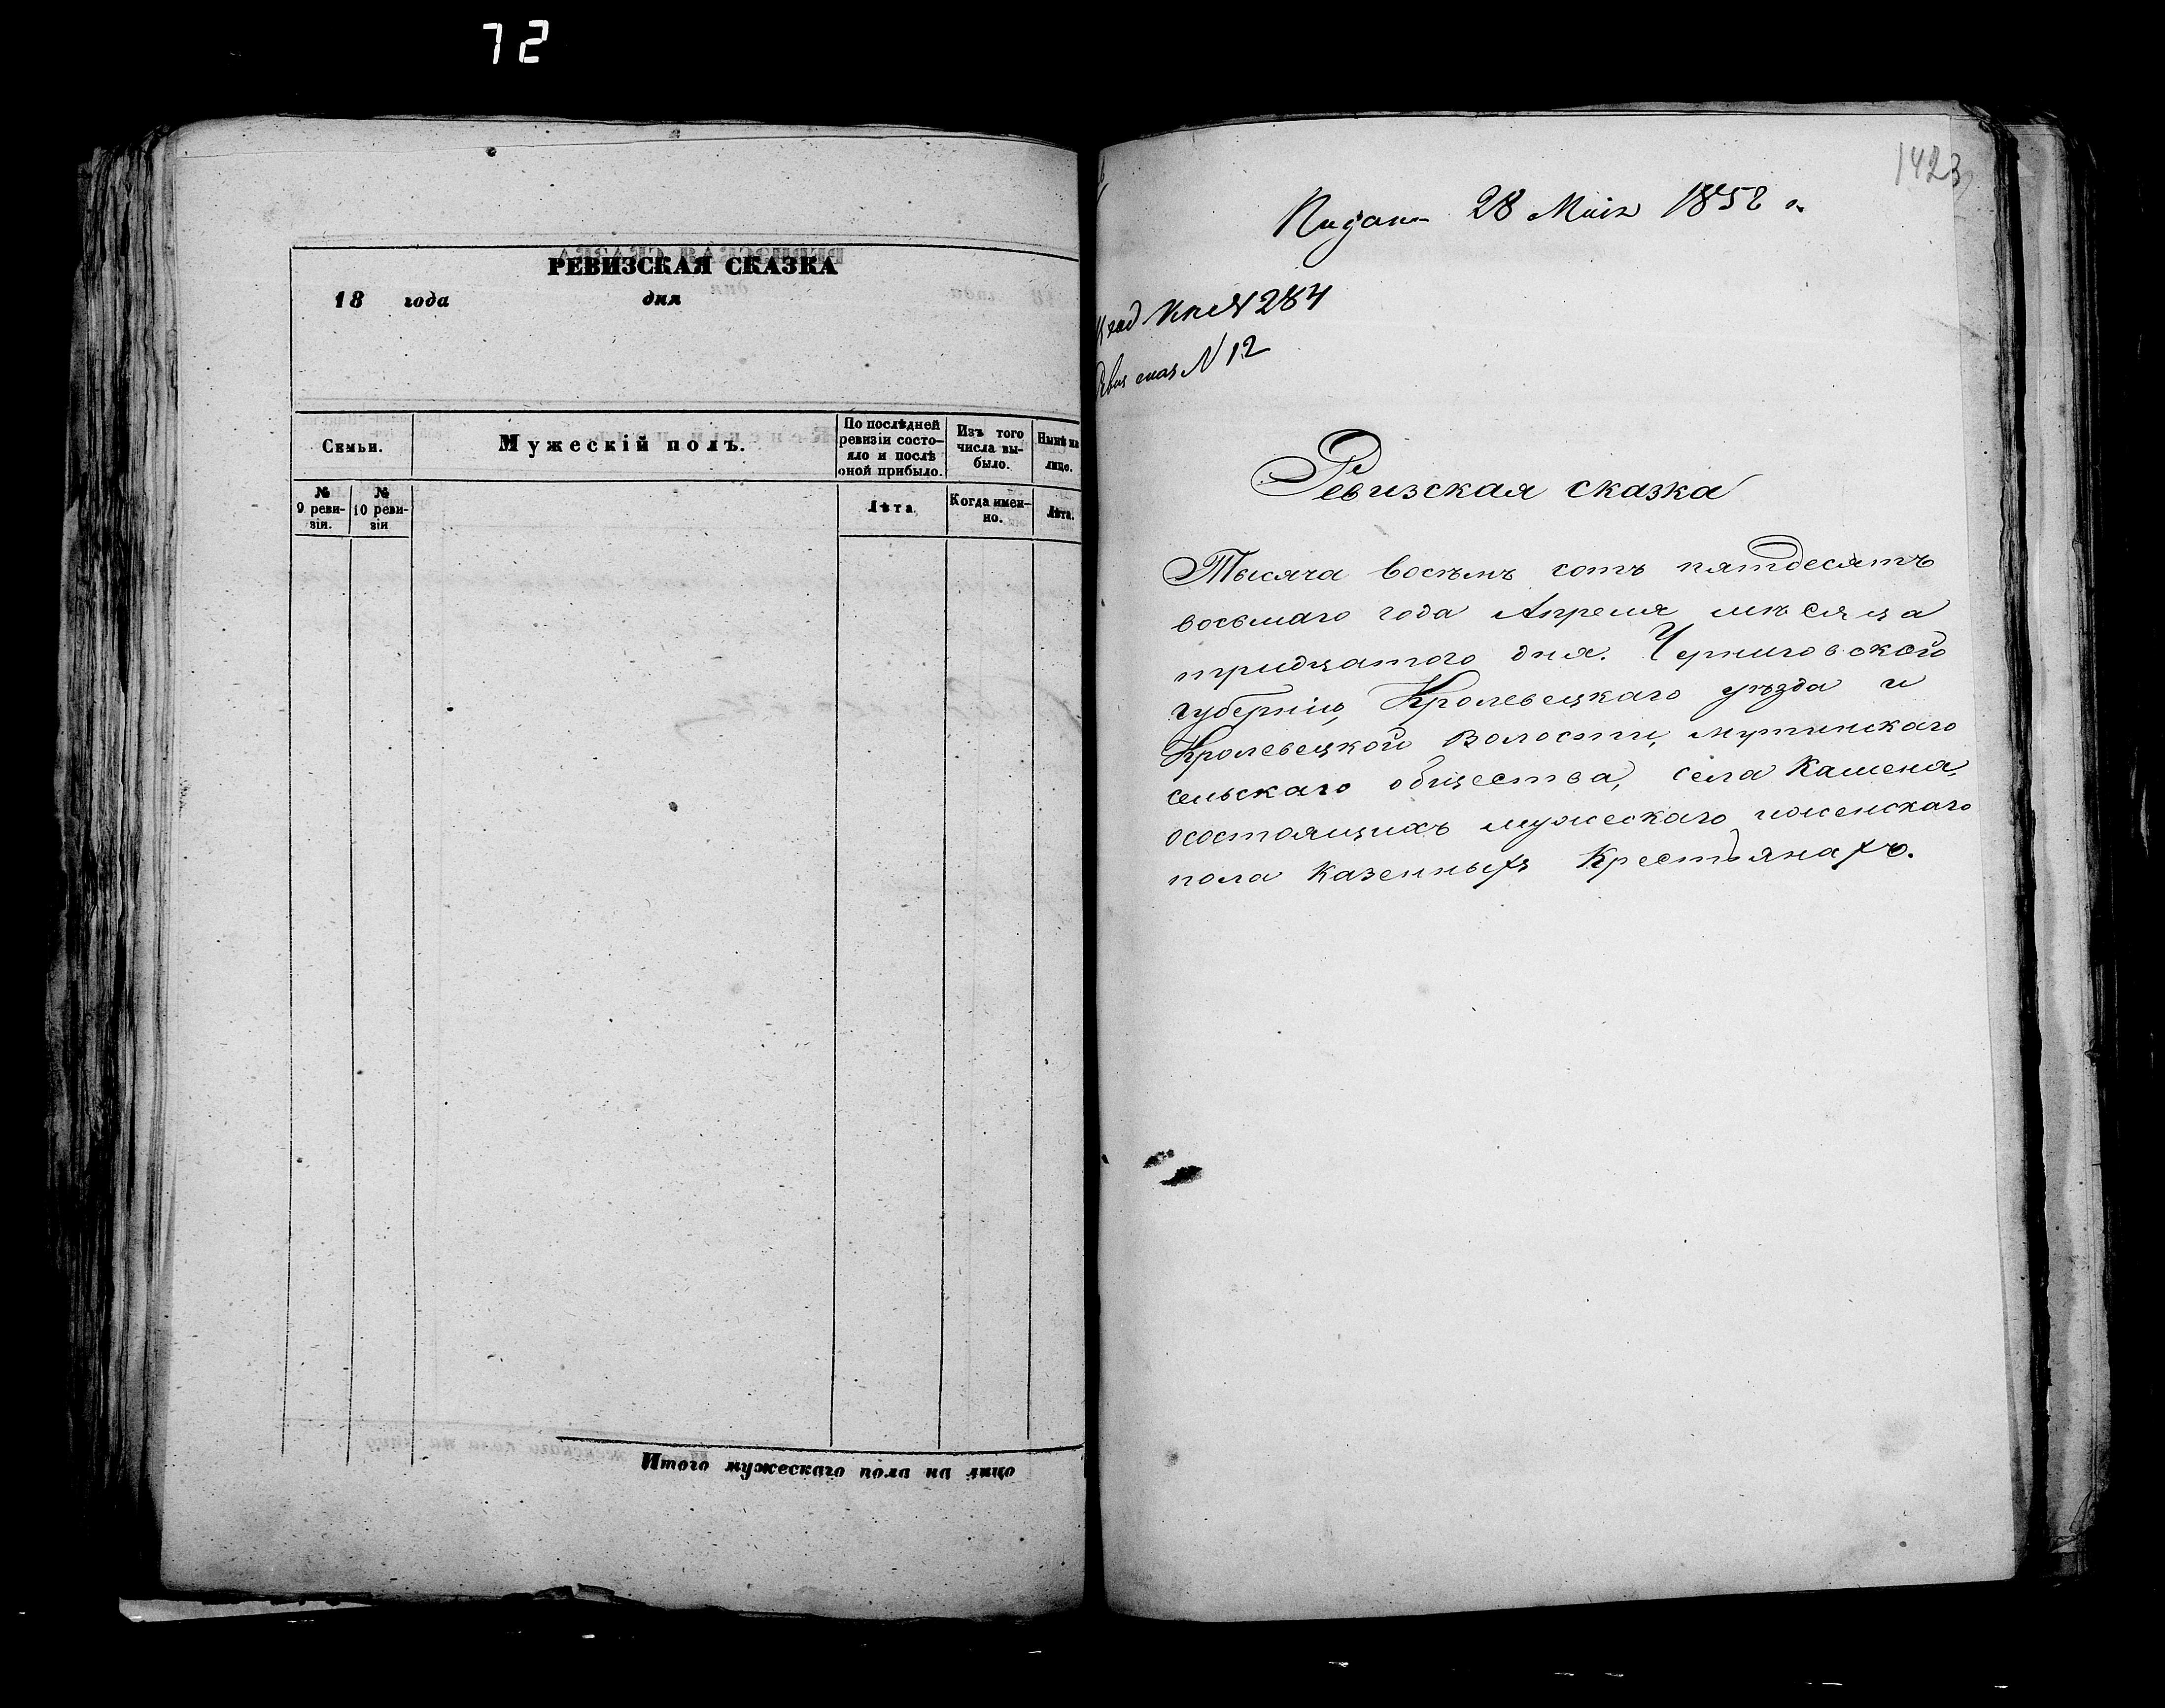 72
РЕВИЗСКАЯ СКАЗКА
18 года дня
Семьи.
Мужескій полъ.
По послѣдней ревизіи состо-
яло и послѣ
оной прибыло.
Изъ того
числа вы-
было.
Нынѣ на
лицо.
№
9 реви-
зіи.
№
10 реви-
зіи
Лѣта.
Когда имен-
но.
Лѣта.
Итого мужескаго пола на лицо
1423
Подана 28 Маія 1858 г.
№ 284
№ 12
Ревизская сказка
Тысяча восѣмъ сотъ пятдесятъ
восьмаго года Апреля мѣсяца
тридцатого дня. Черниговской
губерніи, Кролевецкаго уѣзда и
Кролевецкой Волости, мутинскаго
сельскаго общества, села Камена,
осостоящихъ мужескаго иженскаго
пола Казенныхъ Крестьянахъ.